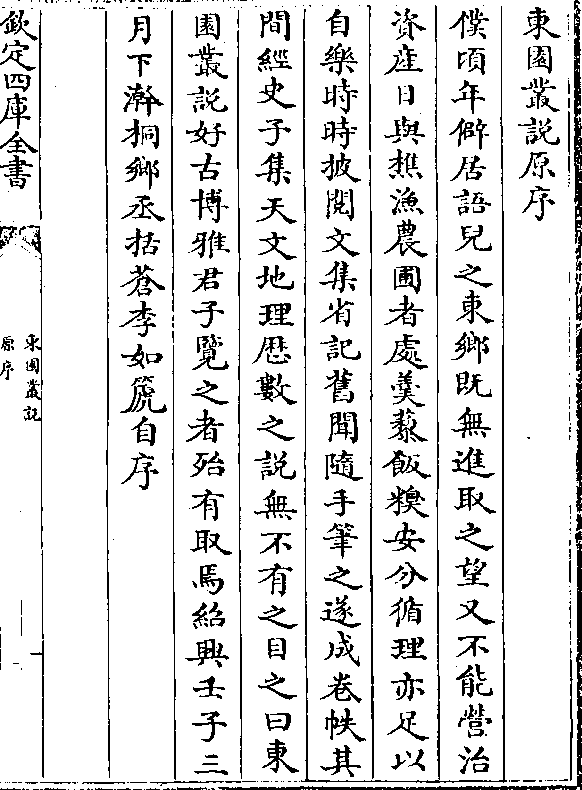 東園叢説原序
僕頃年僻居語兒之東鄉既無進取之望又不能營治
資産日與樵漁農圃者處羮藜飯糗安分循理亦足以
自樂時時披閱文集省記舊聞隨手筆之遂成卷帙其
間經史子集天文地理厯數之説無不有之目之曰東
園叢説好古博雅君子覽之者殆有取焉紹興壬子三
月下澣桐鄉丞括蒼李如箎自序
欽定四庫全書
東園叢說
原序
一